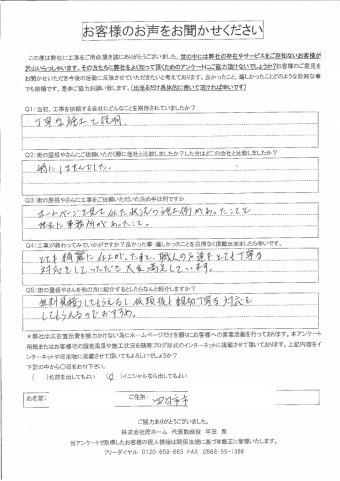 お客様のお声をお聞かせください
この度は弊社に工事をご用命頂き誠にありがとうございました。世の中には弊社の存在やサービスをご存知ないお客様が
沢山いらっしゃいます。その方たちに弊社をよく知って頂くためのアンケートにご協力頂けないでしょうか?お客様のご意見を
お聞かせいただき今後の活動に反映させていただきたいと考えております。良かったこと、嬉しかったことどのような些細な事
でも結構です。是非ご協力お願い致します。(出来るだけ具体的に書いて頂ければ幸いです)
Q1:当初、工事を依頼する会社にどんなことを期待されていましたか?
丁寧な施工と説明
Q2:街の屋根やさんにご依頼いただく際に他社と比較しましたか?した方はどこの会社と比較しましたか?
特にしませんでした。
Q3:街の屋根やさんに工事をご依頼いただいた決め手は何ですか
ホームページを見て 似た状況の施工例があったことと
地元に事務所があったこと。
Q4:工事が終わってみていかがですか?良かった事・嬉しかったことを忌憚なく頂戴出来ましたら幸いです。
とても綺麗に仕上がったし、職人の方達もとても丁寧な
対応をしていただき 大変満足しています。
Q5:街の屋根やさんを他の方に紹介するとしたらなんと紹介しますか?
無料見積りしてもらえるし 依頼後も親切丁寧な対応を
してもらえるのでおすすめ。
※弊社は広告宣伝費を極力かけない為にホームページだけを頼りにお客様への営業活動を行っております。本アンケート
用紙またはお客様宅の調査風景や施工状況を随時ブログ形式のインターネットに掲載させて頂いております。上記内容をイ
ンターネットや印刷物に掲載させて頂いてもよろしいでしょうか?
下記の中から〇印をお付け下さい。
( )名前を出してもよい (〇)イニシャルなら出してもよい
お名前: ご住所: 四日市市
ご協力ありがとうございました。
株式会社匠ホーム 代表取締役 平田 晃
当アンケートで取得したお客様の個人情報は関係法規に基づき厳正に管理いたします。
フリーダイヤル 0120-659-663 FAX 0568-55-1388